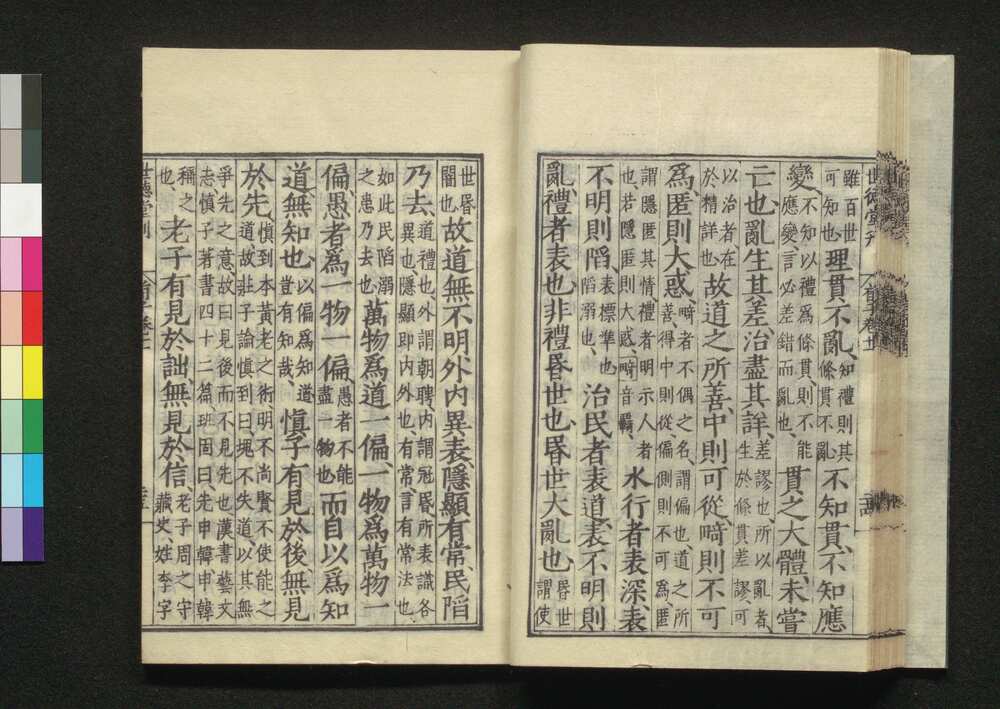 雖百世
可知也
理貫不亂
知禮則其
條貫不亂
不知貫不知應
變
不知以禮爲條貫則不能
應變言必差錯而亂也
貫之大體未嘗
亡也亂生其差治盡其詳
差謬也所以亂者
生於條貫差謬可
以治者在
於精詳也
故道之所善中則可從畸則不可
爲匿則大惑
畸者不偶之名謂偏也道之所
善得中則從偏側則不可爲匿
謂隱匿其情禮者明示人者
也若隱匿則大惑畸音羈
水行者表深表
不明則陷
表標準也
陷溺也
治民者表道表不明則
亂禮者表也非禮昏世也昏世大亂也
昏世
謂使
世昏
闇也
故道無不明外內異表隱顯有常民陷
乃去
道禮也外謂朝聘內謂冠昏所表識各
異也隱顯即內外也有常言有常法也
如此民陷溺
之患乃去也
萬物爲道一偏一物爲萬物一
偏愚者爲一物一偏
愚者不能
盡一物也
而自以爲知
道無知也
以偏爲知道
豈有知哉
慎子有見於後無見
於先
慎到本黃老之術明不尚賢不使能之
道故莊子論慎到曰塊不失道以其無
爭先之意故曰見後而不見先也漢書藝文
志慎子著書四十二篇班固曰先申韓申韓
稱之
也
老子有見於詘無見於信
老子周之守
藏史姓李字
世德堂刊